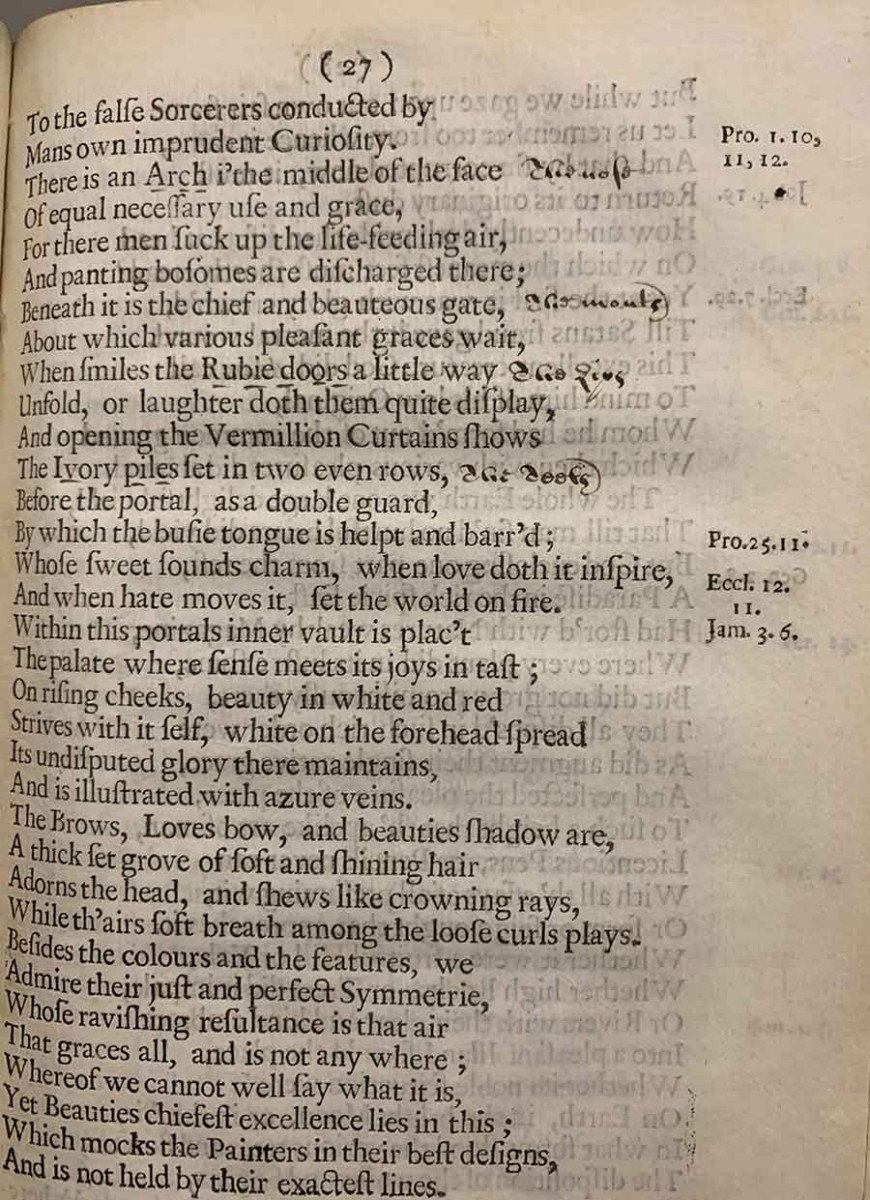 (27)
To the falſe Sorcerers conducted by
Mans own imprudent Curioſity.
Pro. 1. 10,
There is an Arch i'the middle of the face The noſe
11, 12.
Of equal neceſſary uſe and grace,
For there men ſuck up the life-feeding air,
And panting boſomes are diſcharged there;
Beneath it is the chief and beauteous gate, The mouth
About which various pleaſant graces wait,
When ſmiles the Rubie doors a little way The Lips
Unfold, or laughter doth them quite diſplay,
And opening the Vermillion Curtains ſhows
The Ivory piles ſet in two even rows, The Teeth
Before the portal, as a double guard,
By which the buſie tongue is helpt and barr'd;
Pro. 25. 11.
Whoſe ſweet ſounds charm, when love doth it inſpire,
Eccl. 12.
And when hate moves it, ſet the world on fire.
11.
Within this portals inner vault is plac't
Jam. 3. 6.
The palate where ſenſe meets its joys in taſt;
On riſing cheeks, beauty in white and red
Strives with it ſelf, white on the forehead ſpread
Its undiſputed glory there maintains,
And is illuſtrated with azure veins.
The Brows, Loves bow, and beauties ſhadow are,
A thick ſet grove of ſoft and ſhining hair
Adorns the head, and ſhews like crowning rays,
While th'airs ſoft breath among the looſe curls plays.
Beſides the colours and the features, we
Admire their juſt and perfect Symmetrie,
Whoſe raviſhing reſultance is that air
That graces all, and is not any where;
Whereof we cannot well ſay what it is,
Yet Beauties chiefeſt excellence lies in this;
Which mocks the Painters in their beſt deſigns,
And is not held by their exacteſt lines.